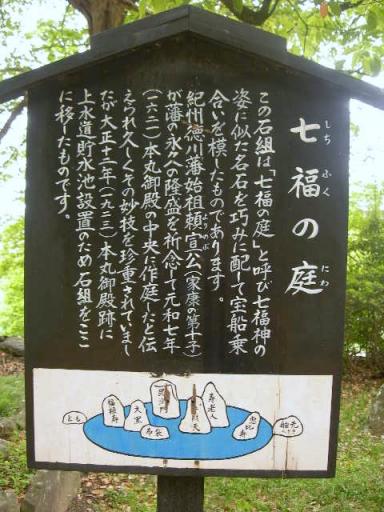 七福の庭
しちふく
にわ
この石組は「七福の庭」と呼び七福神の
姿に似た名石を巧みに配して宝船乗
合いを模したものであります。
紀州徳川藩始祖頼宣公(家康の第十子)
よりのぶ
が藩の永久の隆盛を祈念して元和七年
(一六二一)本丸御殿の中央に作庭したと伝
えられ久しくその妙技を珍重されていまし
たが大正十二年(一九二三)本丸御殿跡に
上水道貯水池設置のため石組をここ
に移したものです。
とも
福禄寿
大黒
布袋
寿老人
恵比寿
船